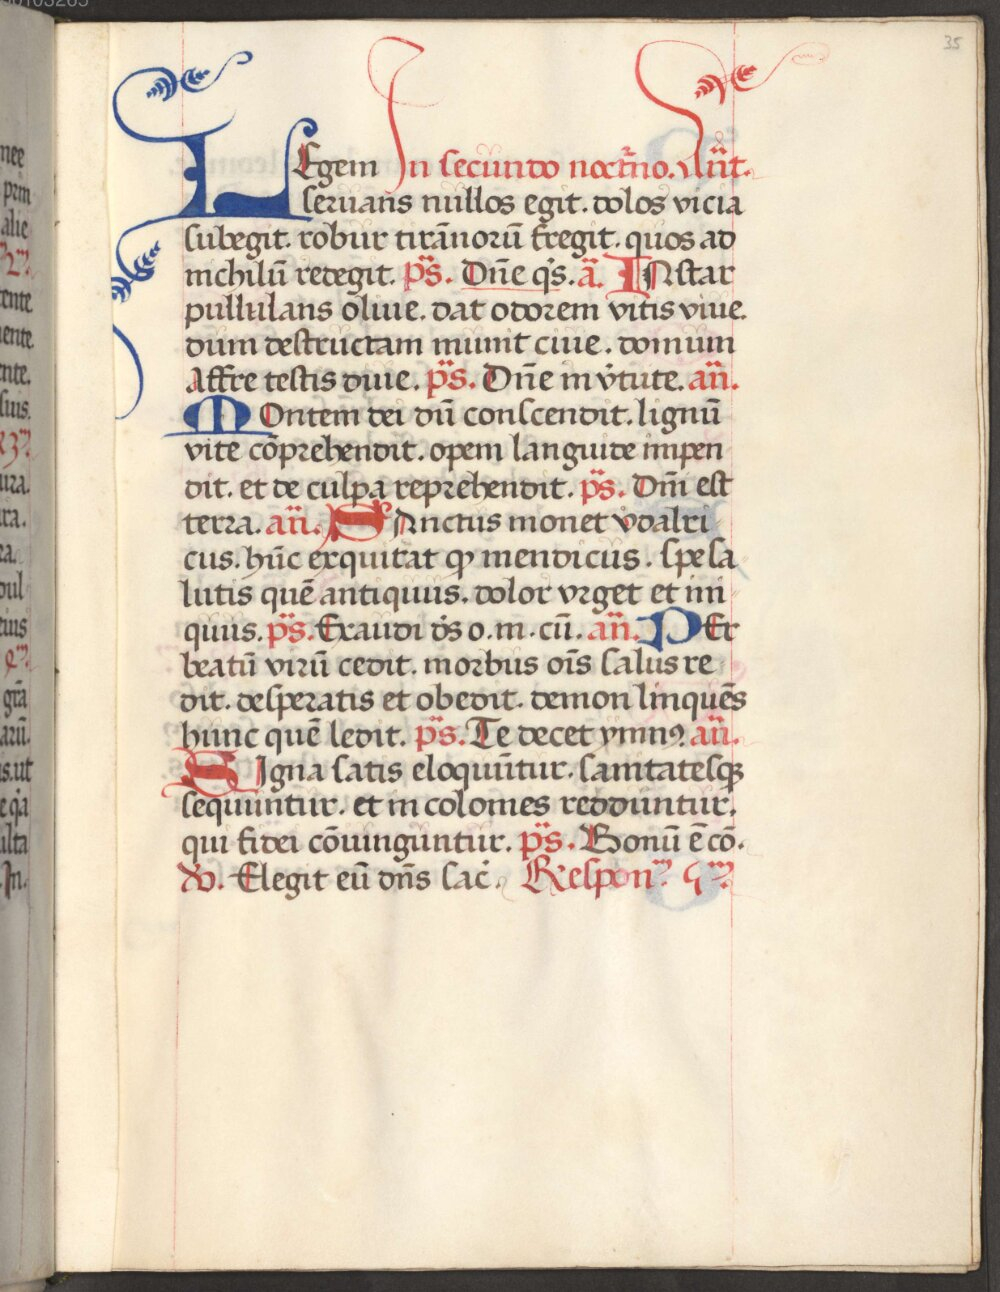 35
LEgem In secundo noct̄no. Ant.
seruans nullos egit. dolos vicia
subegit. robur tirānorū fregit. quos ad
nichilū redegit. ps. Dn̄e q̄s. ā. INstar
pullulans oliue. dat odorem vitis viue.
dum destructam munit ciue. domum
Affre testis diue. ps. Dn̄e in v̇tute. an̄.
MOntem dei dū conscendit. lignū
vite cōprehendit. opem languide inpen
dit. et de culpa reprehendit. ps. Dn̄i est
terra. an̄. SAnctus monet vdalri
cus. hūc exquirat qͥ mendicus. spe sa
lutis quē antiquus. dolor vrget et ini
quus. ps. Exaudi ds o. m. cū. an̄. PEr
beatū virū cedit. morbus oīs salus re
dit. desperatis et obedit. demon linquēs
hunc quē ledit. ps. Te decet ymnꝰ. an̄.
SIgna satis eloquūtur. sanitatesqꝫ
sequuntur. et in colomes reddūntur.
qui fidei cōuinguntur. ps. Bonū ē cō.
V. Elegit eū dn̄s sac̄. Respon